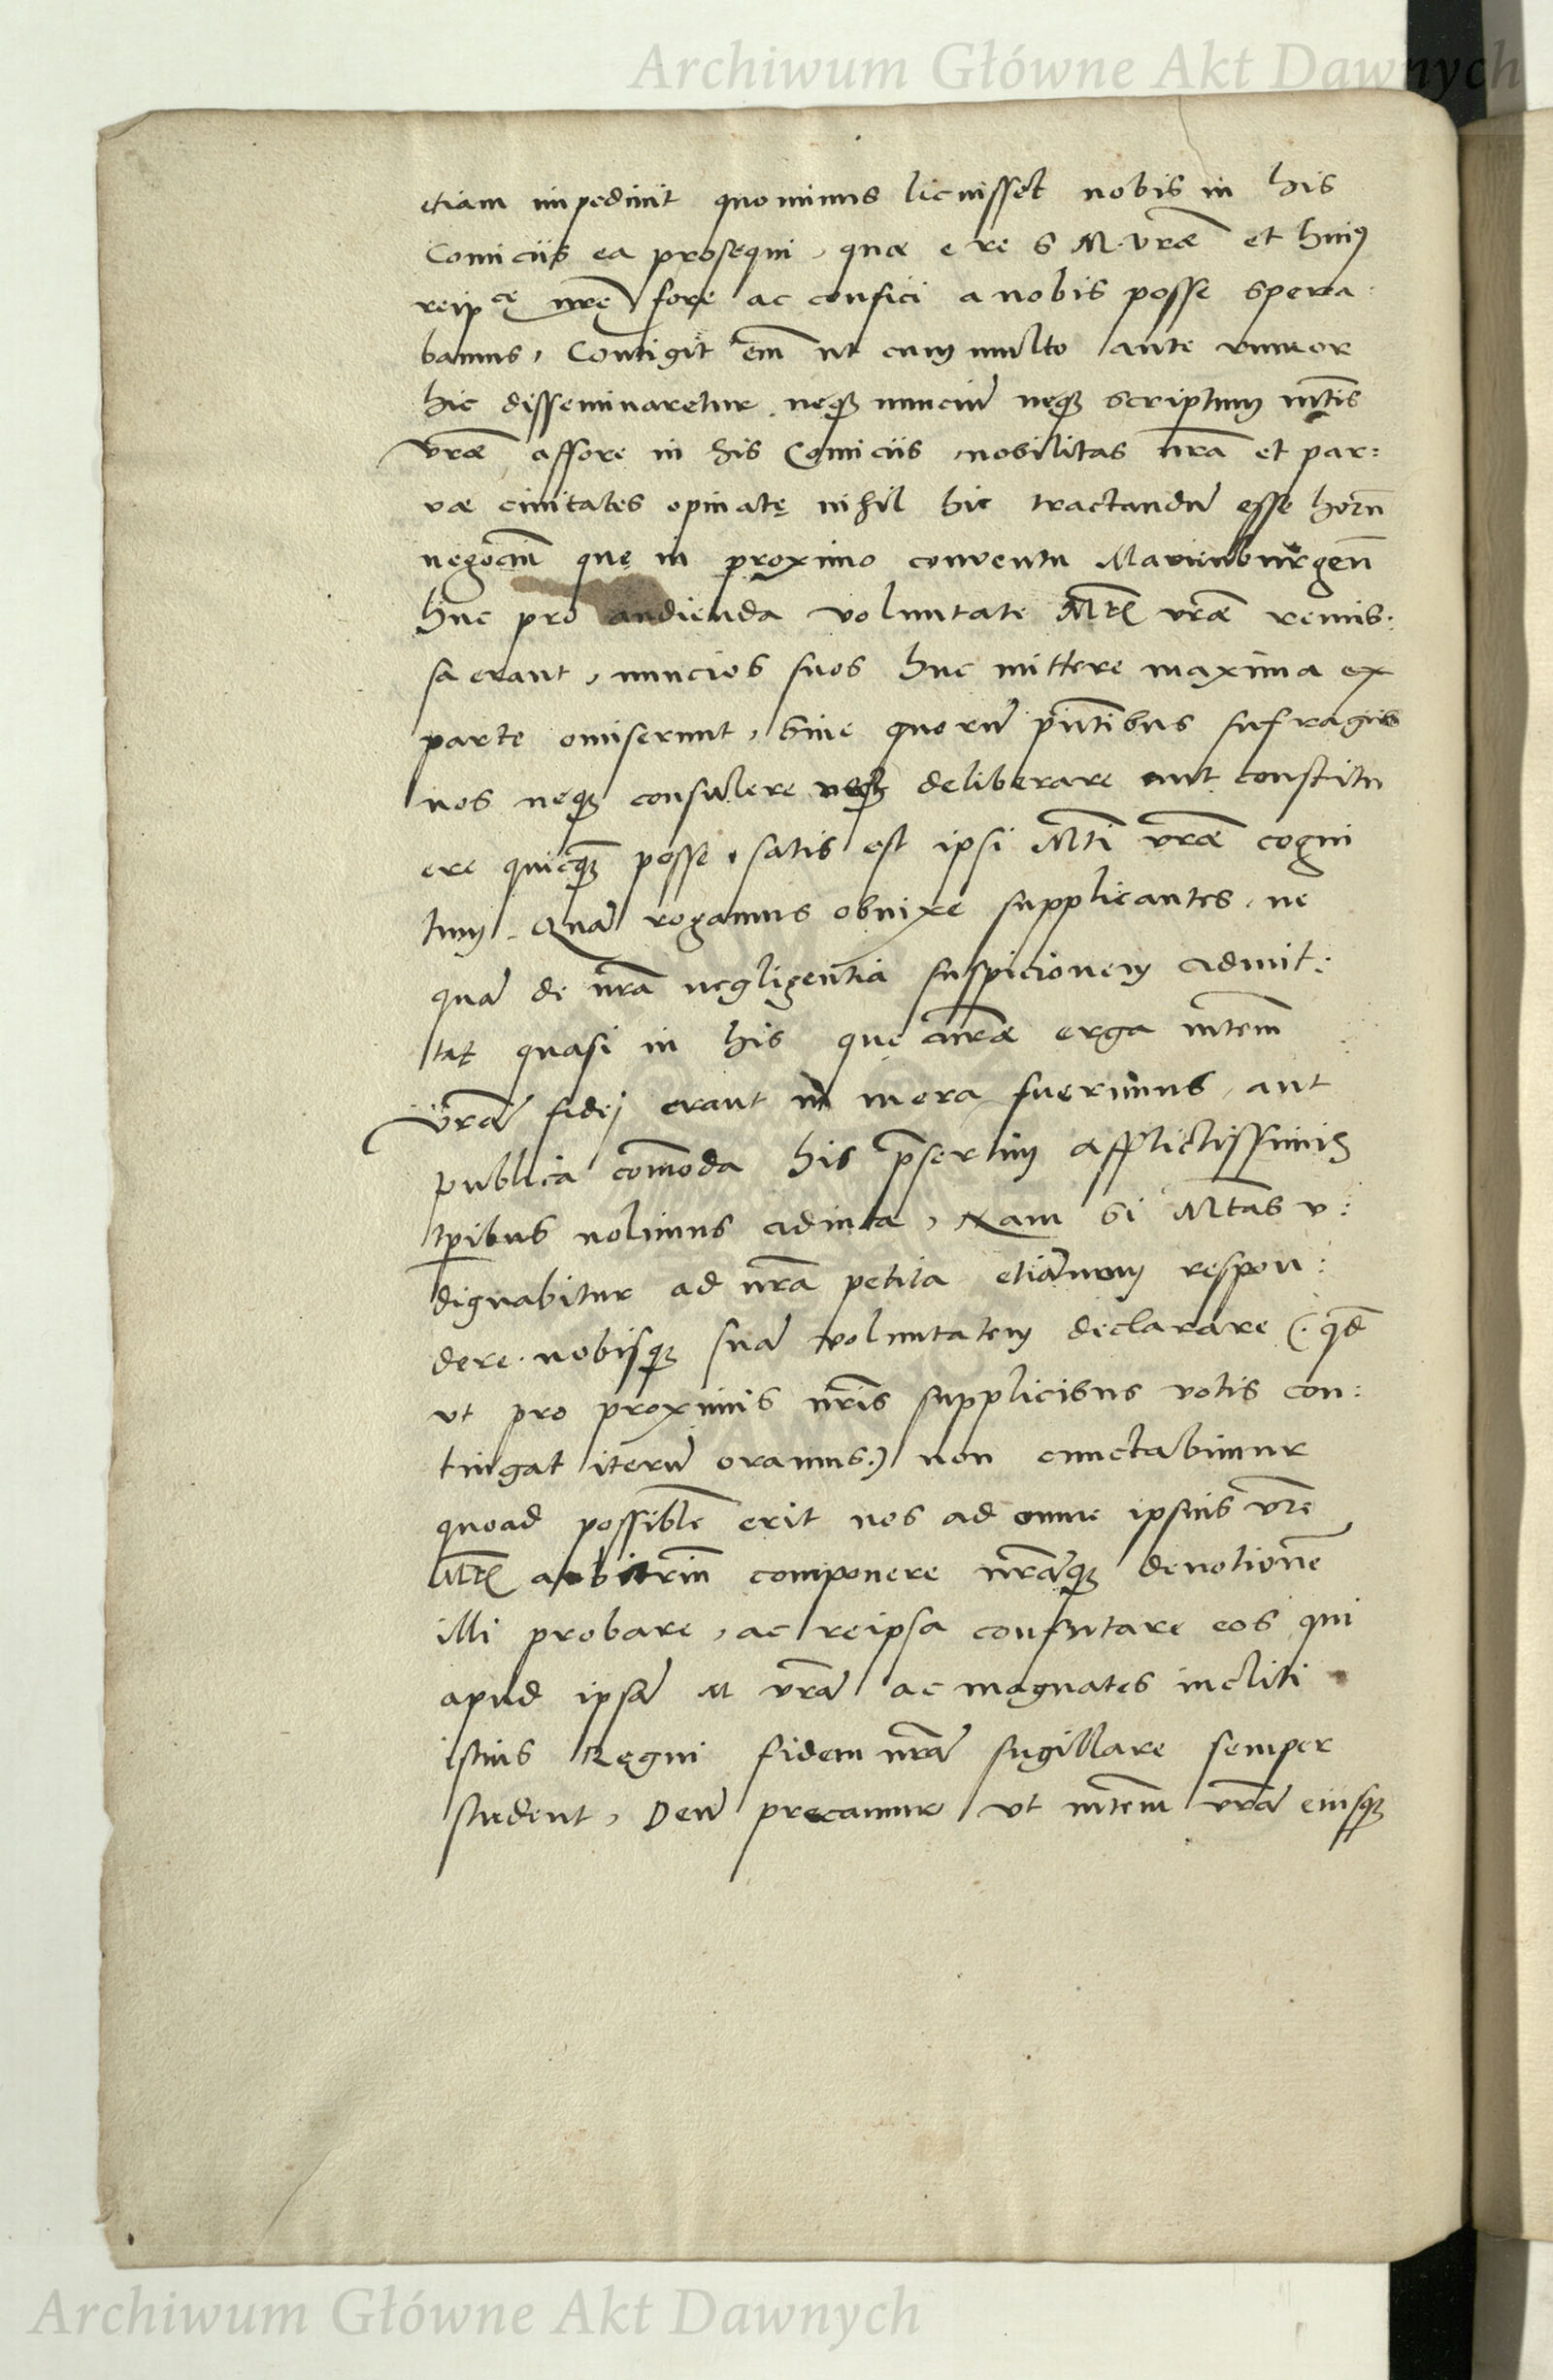 Archiwum Główne Akt Dawnych
etiam impedivit quominus licuisset nobis in his
Comiciis ea prosequi, quae e re S M. vrae et huiꝰ
reipce nrę fore ac confici a nobis posse spera:
bamus, Contigit em ut cum multo ante rumor
hic disseminaretur neqꝫ nunciũ neqꝫ scriptum mtis
vrae affore in his Comiciis nobilitas nra et par:
vae civitates opinatę nihil hic tractandũ esse horũ
negociũ quę in proximo conventu Marienburgen
huc pro audienda voluntate Mtis vrae remis:
sa erant, nuncios suos huc mittere maxima ex
parte omiserunt, Sine quorũ pntibus sufragiis
nos neqꝫ consulere neqꝫ deliberare aut constitu
ere quicqꝫ posse, satis est ipsi Mti vrae cogni
tum. Quã rogamus obnixe supplicantes, ne
quã de nra negligentia suspicionem admit:
tat quasi in his que nrae erga mtem
vrã fidej erant in mora fuerimus, aut
publica comoda his psertim afflictissimis
tpibus nolimus adiuta, Nam si Mtas v:
dignabitur ad nra petita etiãnum respon:
dere. nobisqꝫ suã voluntatem declarare (: qd
ut pro proximis nris supplicibus votis con:
tingat iterũ oramus:) non cunctabimur
quoad possible erit nos ad omne ipsius vre
Mtis arbitriũ componere nrãqꝫ devotione
illi probare, ac reipsa confutare eos qui
apud ipsã M vrã ac magnates incliti
istius Regni fidem nrã sugillare semper
student, Deũ precamur ut mtem vrã eiusqꝫ
Archiwum Główne Akt Dawnych